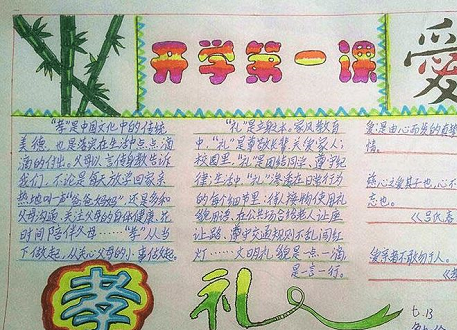 开学第一课
爱
"孝"是中国文化中的传统
美德,也是落实在生活中点点滴
滴的付出。父母以言传身教告诉
我们,不论是每天放学回家亲
热地叫一声"爸爸妈妈",还是多和
父母沟通,关注父母的身体健康,花
时间陪伴父母……"孝"从当
下做起,从关心父母的小事做起。
孝
"礼"是立身之本。家风教育
中,"礼"是尊敬长辈,关爱家人;
校园里,"礼"是团结同学,遵守纪
律;生活中,"礼"渗透在日常行为
的每个细节里:待人接物使用礼
貌用语,在公共场合给老人让座
让路,遵守交通规则不乱闯红
灯……文明礼貌是一点一滴,
是一言一行。
礼
爱是由心而发的真挚
情。
慈心
志也。
《吕氏春
爱亲者不敢
《孝
七.13